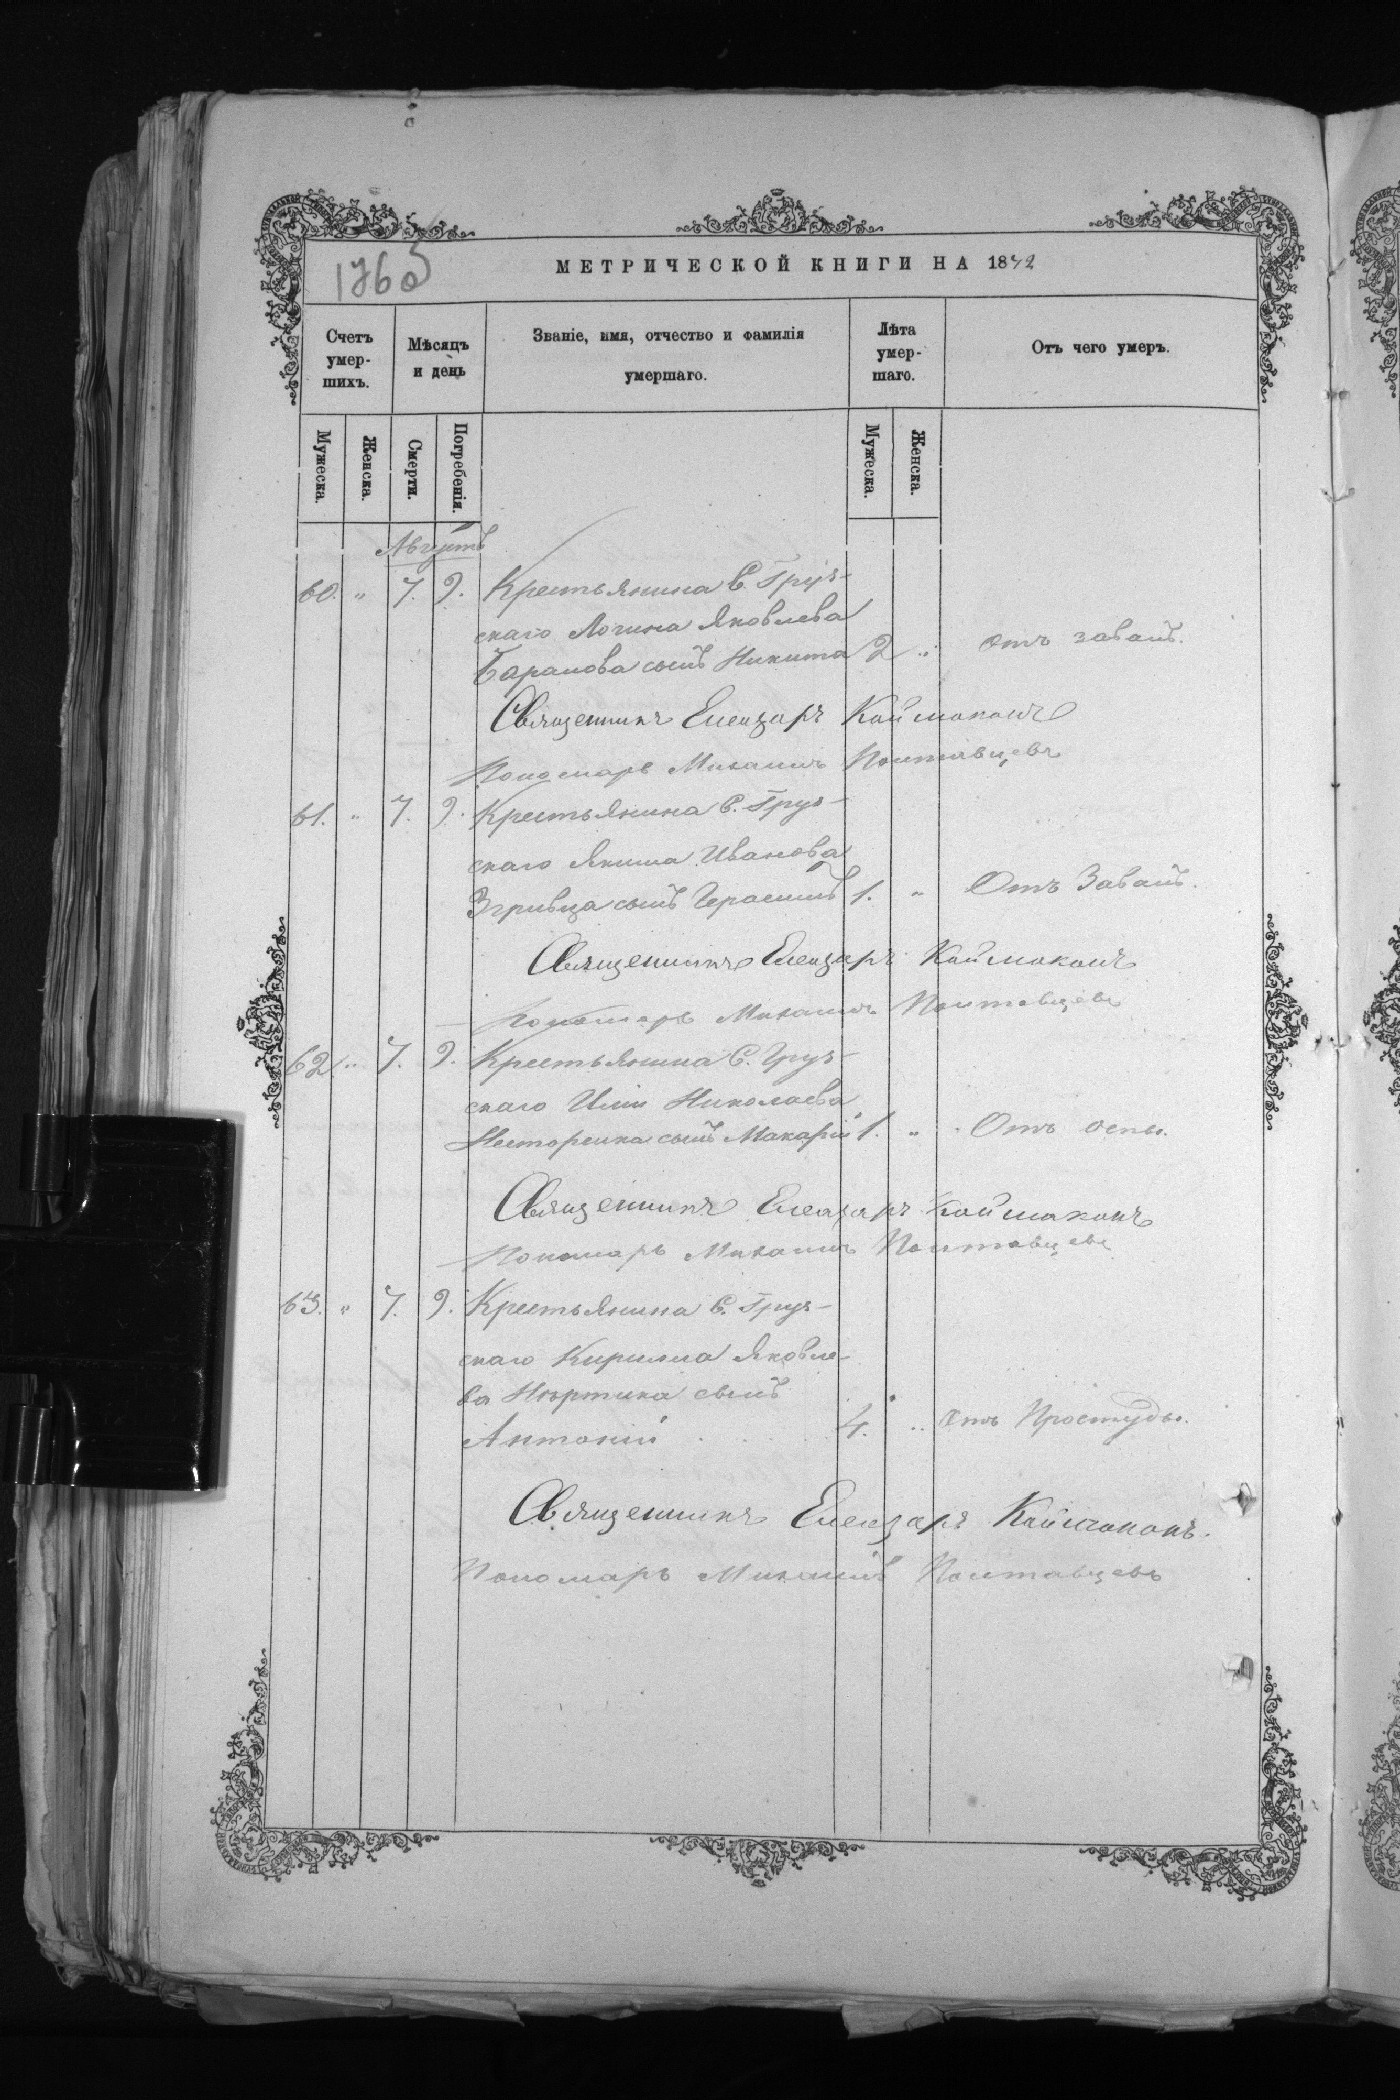 1760
МЕТРИЧЕСКОЙ КНИГИ НА 1872
Счетъ умер-шихъ.
Мѣсяцъ и день
Званіе, имя, отчество и фамилія умершаго.
Лѣта умер-шаго.
Отъ чего умеръ.
Мужеска.
Женска.
Смерти.
Погребенія.
Мужеска.
Женска.
Августъ
60. " 7. 9. Крестьянина С. Груз-
скаго Логина Яковлева
Баранова сынъ Никита 2 " отъ завалъ.
Священникъ Елеазаръ Каймаканъ
Пономарь Михаилъ Полтавцевъ
61. " 7. 9. Крестьянина С. Груз-
скаго Якима Иванова
Згривца сынъ Герасимъ 1. " Отъ Завалъ.
Священникъ Елеазаръ Каймаканъ
Пономарь Михаилъ Полтавцевъ
62 " 7. 9. Крестьянина С. Груз-
скаго Ильи Николаева
Несторенка сынъ Макарій 1. " Отъ оспы.
Священникъ Елеазаръ Каймаканъ
Пономарь Михаилъ Полтавцевъ
63. " 7. 9. Крестьянина С. Груз-
скаго Кирилла Яковле-
ва сынъ
Антоній 4. " отъ Простуды.
Священникъ Елеазаръ Каймаканъ.
Пономарь Михаилъ Полтавцевъ